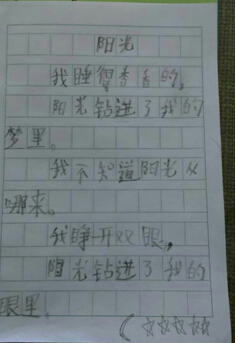 阳光
我睡得香香的。
阳光钻进了我的
梦里。
我不知道阳光从
哪来。
我睁开双眼,
阳光钻进了我的
眼里。
(☆☆☆☆☆